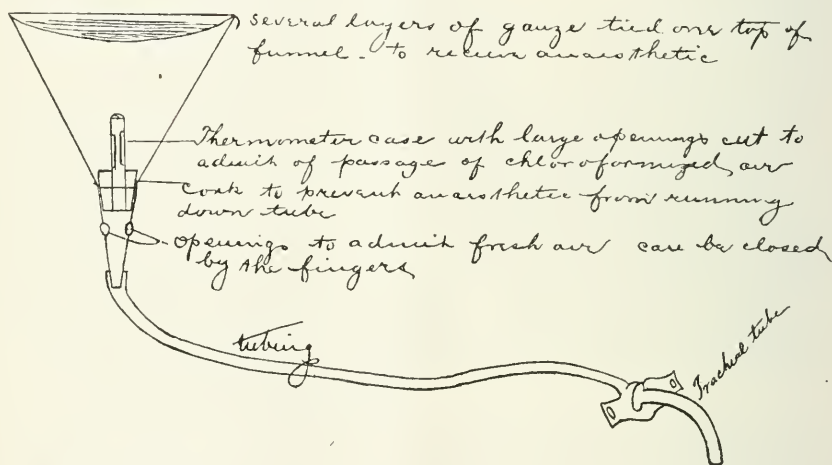 several layers of gauze tied over top of
funnel - to receive anaesthetic
Thermometer case with large openings cut to
admit of passage of chloroformized air
cork to prevent anaesthetic from running
down tube
openings to admit fresh air can be closed
by the fingers
tubing
Tracheal tube